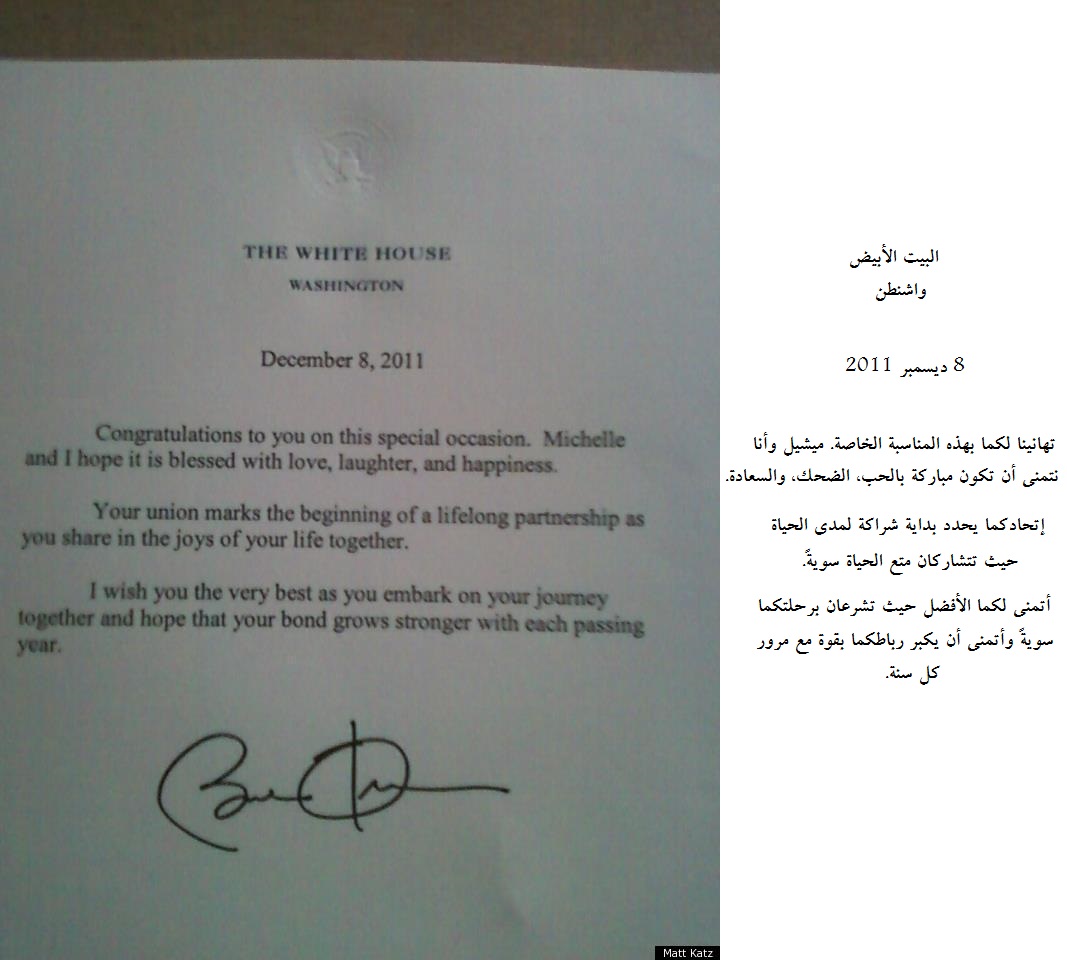 THE WHITE HOUSE
WASHINGTON
December 8, 2011
Congratulations to you on this special occasion. Michelle
and I hope it is blessed with love, laughter, and happiness.
Your union marks the beginning of a lifelong partnership as
you share in the joys of your life together.
I wish you the very best as you embark on your journey
together and hope that your bond grows stronger with each passing
year.
Matt Katz
البيت الأبيض
واشنطن
8 ديسمبر 2011
تهانينا لكما بهذه المناسبة الخاصة. ميشيل وأنا
نتمنى أن تكون مباركة بالحب، الضحك، والسعادة.
إتحادكما يحدد بداية شراكة لمدى الحياة
حيث تتشاركان متع الحياة سويةً.
أتمنى لكما الأفضل حيث تشرعان برحلتكما
سويةً وأتمنى أن يكبر رباطكما بقوة مع مرور
كل سنة.